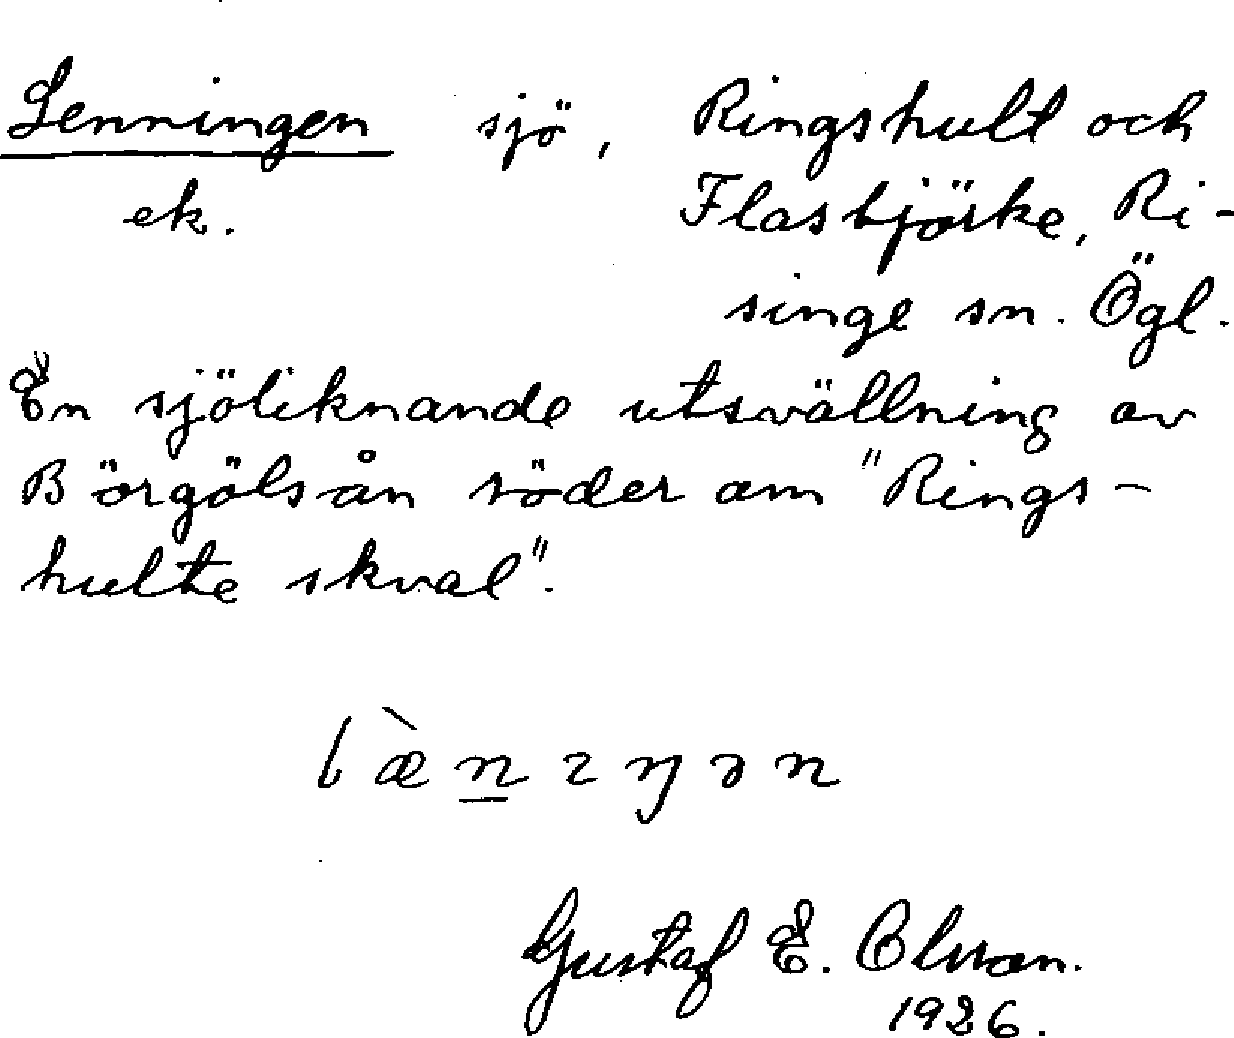 Lenningen sjö, Ringshult och
ek. Flasbjörke, Ri-
singe sn. Ögl.
En sjöliknande utsvällning av
Börgölsån söder om "Rings-
hulte skval".
læ̀n̲ıŋən
Gustaf E. Olsson.
1926.